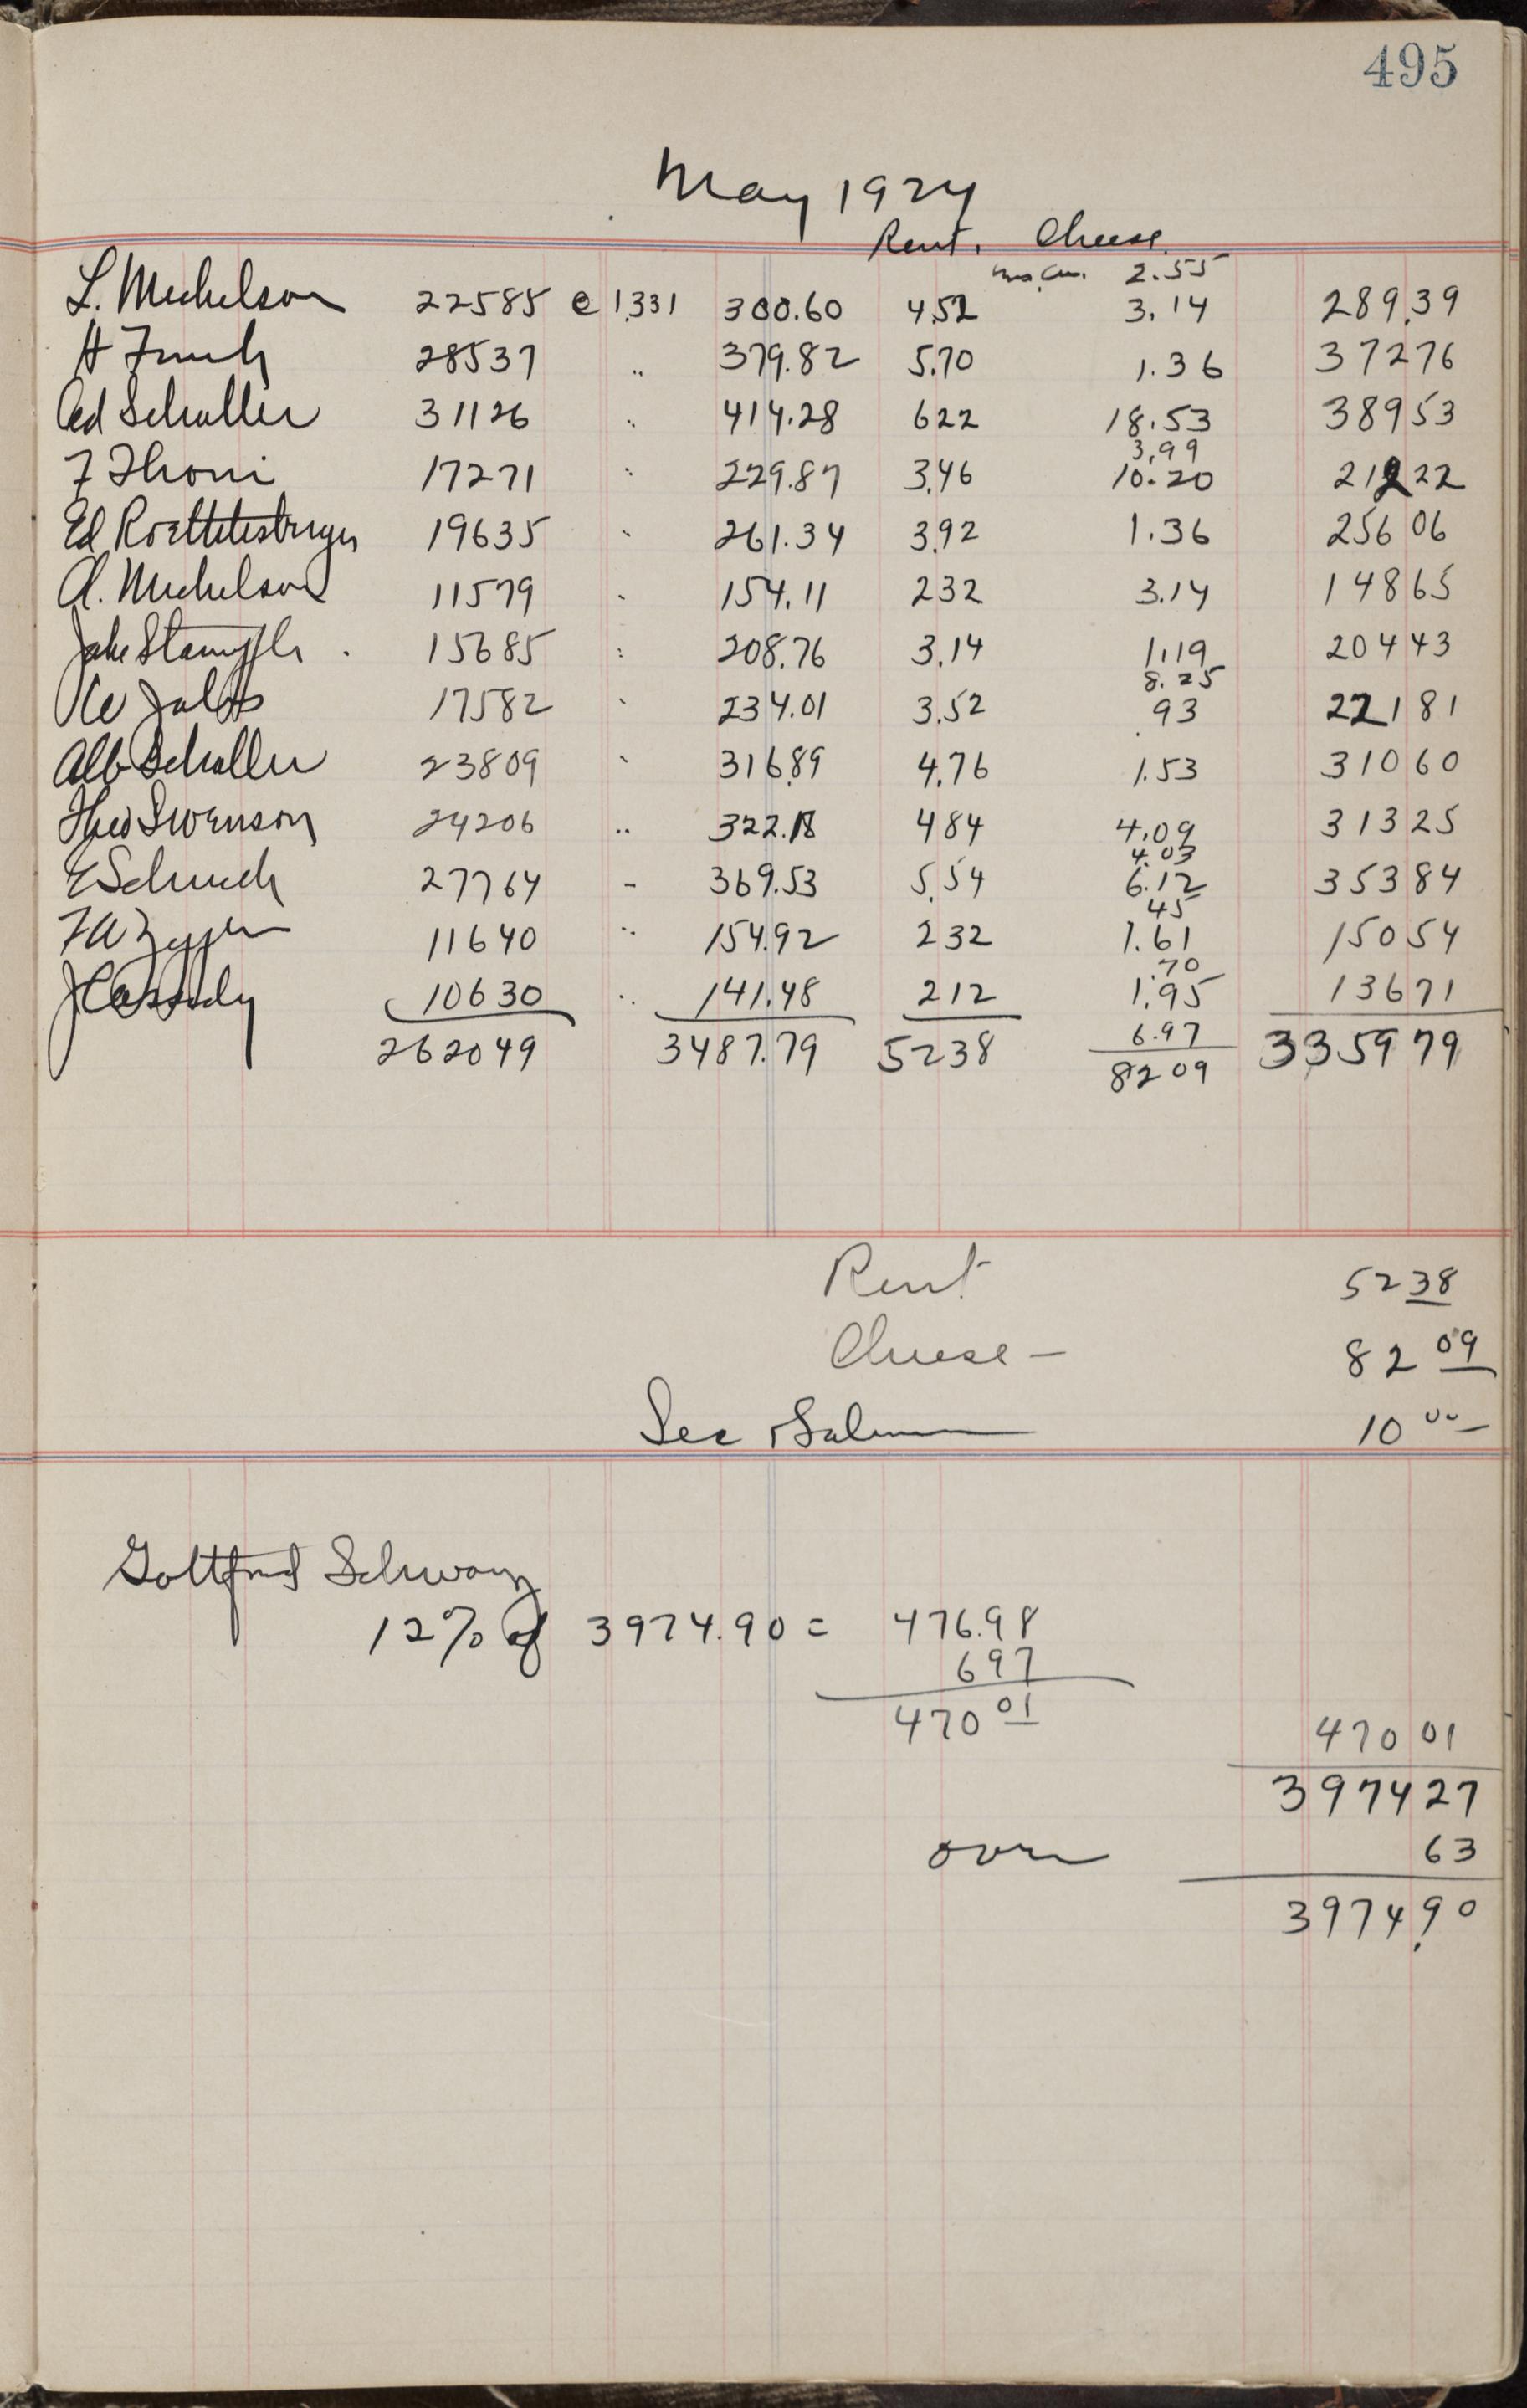 495
May 1924
Rent. Cheese
2.55
L. Michelson 22585 @ 1.331 300.60 4.52 3.14 289.39
H 28537 " 379.82 5.70 1.36 372 76
Ed Schaller 31126 " 414.28 6 22 18.53 389 53
3.99
F Thoni 17271 " 229.87 3.46 10.20 212 22
Ed Roethlisberger 19635 " 261.34 3.92 1.36 256 06
A. Michelson 11579 " 154.11 2 32 3.14 148 65
Jake Stampfli 15685 " 208.76 3.14 1.19 204 43
8.25
17582 " 234.01 3.52 .93 221 81
Alb Schaller 23809 " 316.89 4.76 1.53 310 60
Theo Swenson 24206 " 322.18 4 84 4.09 313 25
4.03
E Schuch 27764 " 369.53 5.54 6.12 353 84
45
F W 11640 " 154.92 2 32 1.61 150 54
.70
J Cassidy 10630 " 141.48 2 12 1.95 136 71
6.97
262049 3487.79 52 38 82 09 3359 79
Rent 52 38
Cheese – 82 09
Sec 10 00
Gottfried Schwarz
12% of 3974.90 = 476.98
6 97
470 01
470 01
3974 27
over 63
3974.90